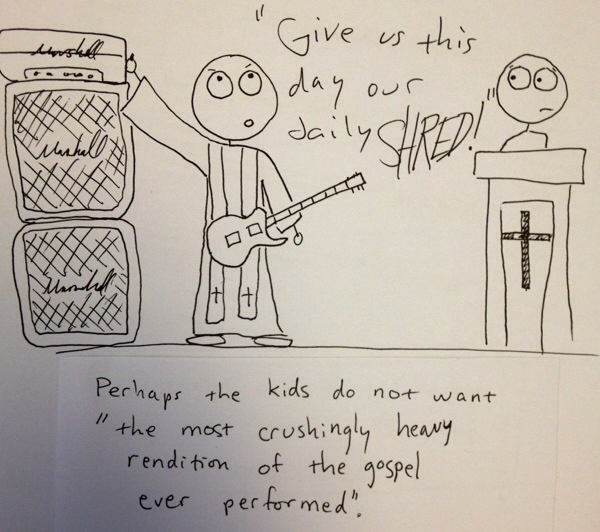 "Give us this
day our
daily SHRED!"
Marshall
Marshall
Marshall
Perhaps the kids do not want
"the most crushingly heavy
rendition of the gospel
ever performed".